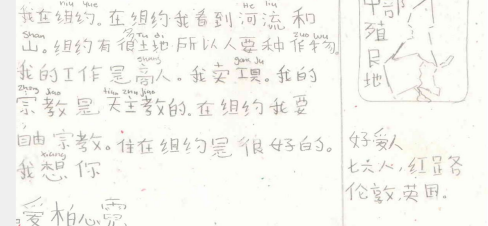 niu yue He liu
我在纽约。在纽约我看到河流和
shan tu di zuo wu
山。纽约有很多土地所以人要种作物。
shang gon ju
我的工作是商人。我卖工具。我的
zhong jiao tian zhu jiao
宗教是天主教的。在纽约我要
自由宗教。住在纽约是很好的。
xiang
我想你
爱柏心霓
中部
殖
民
地
好爱人
七六八,红路
伦敦,英国。